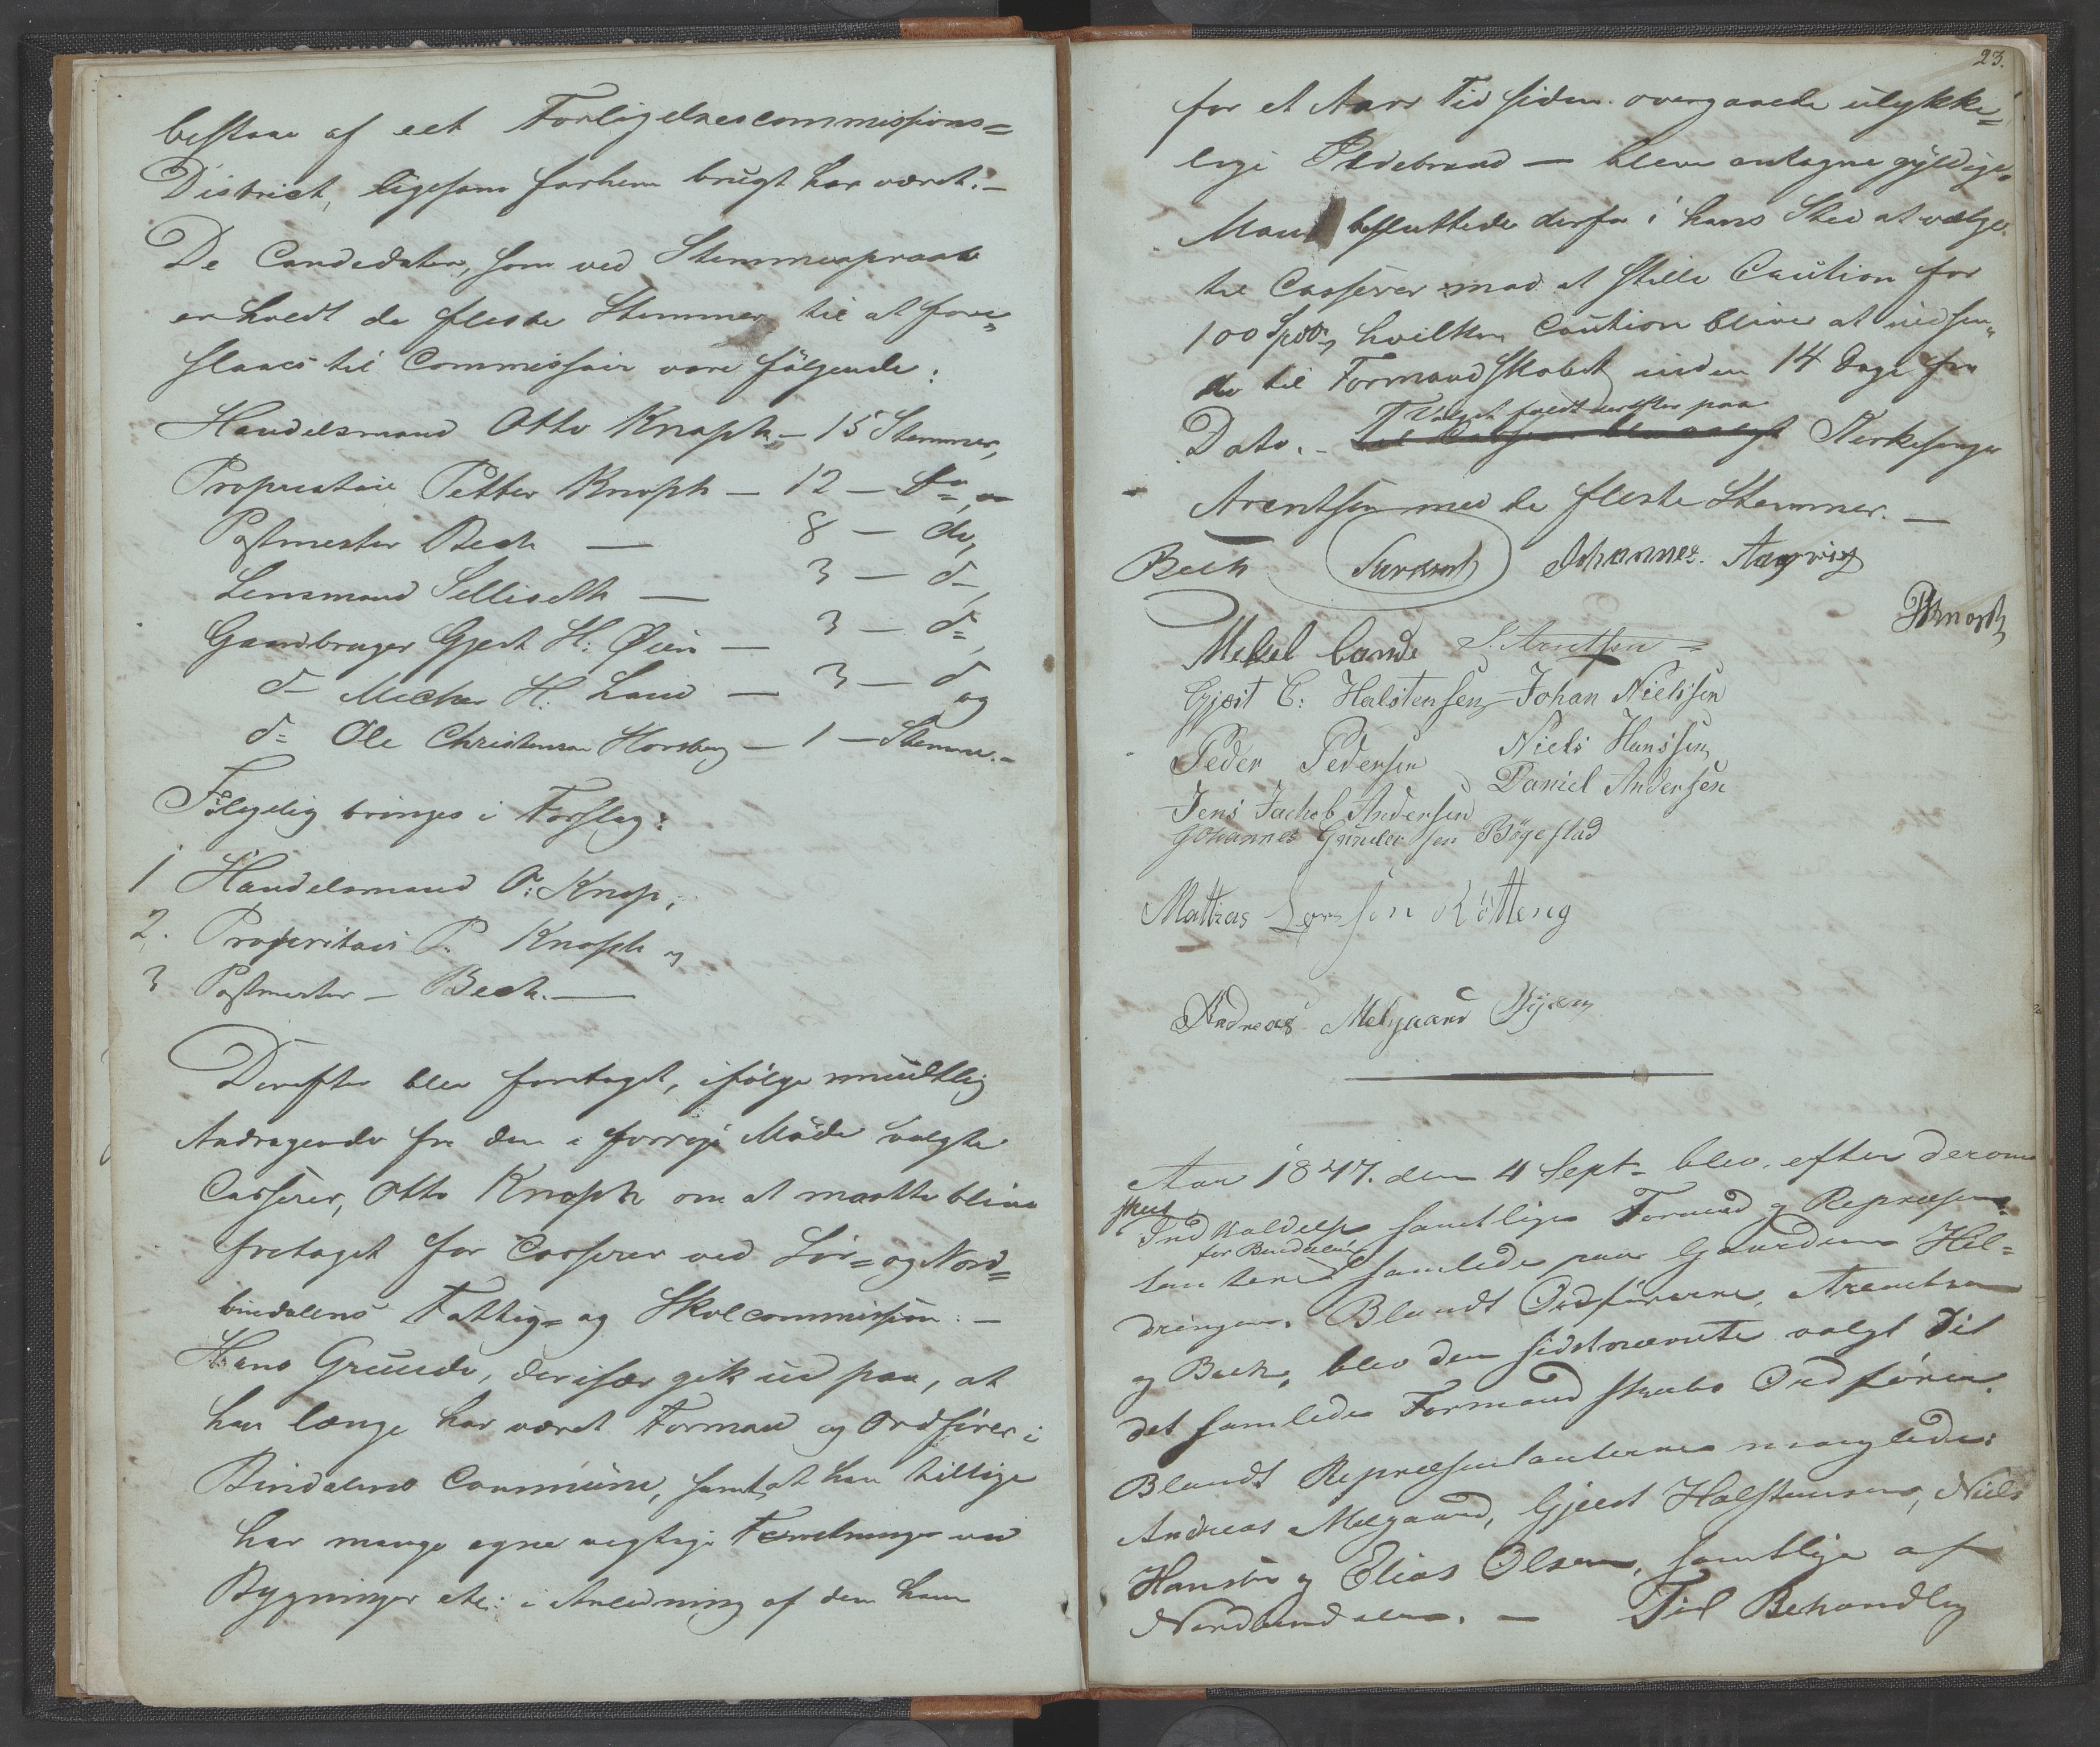 bestaae af eet Forligelsescommissions=
District, ligesom forhen brugt har været. –
De Candidater, som ved Stemmeopraab
erholdt de fleste Stemmer til at fore=
slaaes til Commissair vare følgende:
Handelsmand Otto Knoph – 15 Stemmer,
Proprietair Petter Knoph – 12 – do,
Postmester Beck — 8 – do,
Lensmand Selliseth — 3 – do,
Gaardbruger Gjert H: Øien – 3 – do,
do Michas H: Lund – 3 – do og
do Ole Christensen Horsberg – 1 – Stemme. –
Følgelig bringes i Forslag:
1 Handelsmand O: Knop,
2. Proprietair P. Knoph og
3 Postmester – Beck. —
Derefter blev foretaget, ifølge mundtlig
Andragende fra den i forrige Møde valgte
Casserer, Otto Knoph om at maatte blive
fritaget for Casserer ved Sør= og Nord=
bindalens Fattig= og Skolecommission. –
Hans Grunde, der især gik ud paa, at
han længe har været Formand og Ordfører i
Bindalens Commune, samt at han tillige
har mange egne vigtige Forretninger ved
Bygninger etc: i Anledning af den ham
23.
for et Aars Tid siden overgaaede ulykke=
lige Ildebrand — bleve antagne gyldige.
Man besluttede derfor i hans Sted at vælge
til Casserer mod at stille Caution for
100 Spd, hvilken Caution bliver at indsen=
de til Formandskabet inden 14 Dage fra
Valget faldt derefter paa
Dato. – Til Casserer blev valgt Kirkesanger
Arentsen med de fleste Stemmer. —
Beck Johannes Aagwig
PKnoph
Mikel Lande S. Arentsen
Gjert C: Halstensen Johan Nielsen
Peder Pedersen Niels Hanssen
Daniel Andersen
Jens Jachob Andersen
Johannes Gundersen Bøgestad
Mattias Larssen Røtteng
Andreas Melgaard
Aar 1847. den 4 Sept= blev efter derom
skeet
Indkaldelse samtlige Formænd og Repræsen=
for Bindalen
tantere samlede paa Gaarden Hil=
dringen. Blandt Ordførerne, Arentsen
og Beck, blev den sidstnævnte valgt til
det samlede Formandskabs Ordfører.
Blandt Repræsentanterne manglede:
Andreas Melgaard, Gjert Halstensen, Niels
Hansen og Elias Olsen, samtlige af
Nordbindalen. – Til Behandling